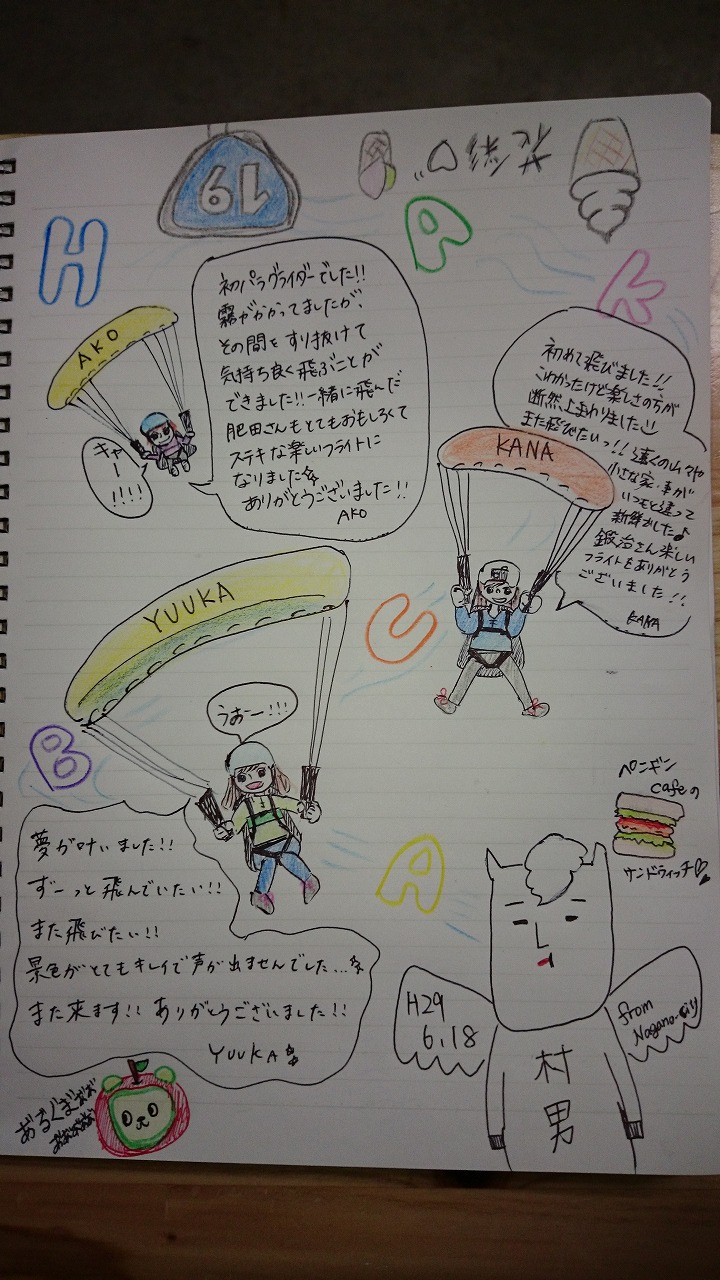 19
花彩
H
A
K
U
B
A
AKO
キャー
!!!!
初パラグライダーでした!!
霧がかかってましたが、
その間をすり抜けて
気持ち良く飛ぶことが
できました!!一緒に飛んだ
肥田さんもとてもおもしろくて
ステキな楽しいフライトに
なりました
ありがとうございました!!
AKO
初めて飛びました!!
こわかったけど楽しさの方が
断然上まわりました
また飛びたいっ!!遠くの山々や
小さな家・車が
いつもと違って
新鮮でした♪
鍛治さん楽しい
フライトをありがとう
ございました!!
KANA
KANA
YUUKA
うおー!!!
夢が叶いました!!
ずーっと飛んでいたい!!
また飛びたい!!
景色がとてもキレイで声が出ませんでした...
また来ます!! ありがとうございました!!
YUUKA
ペンギン
cafeの
サンドウィッチ♡
H29
6.18
from
Nagano-city
村
男
あるくまぉぉ